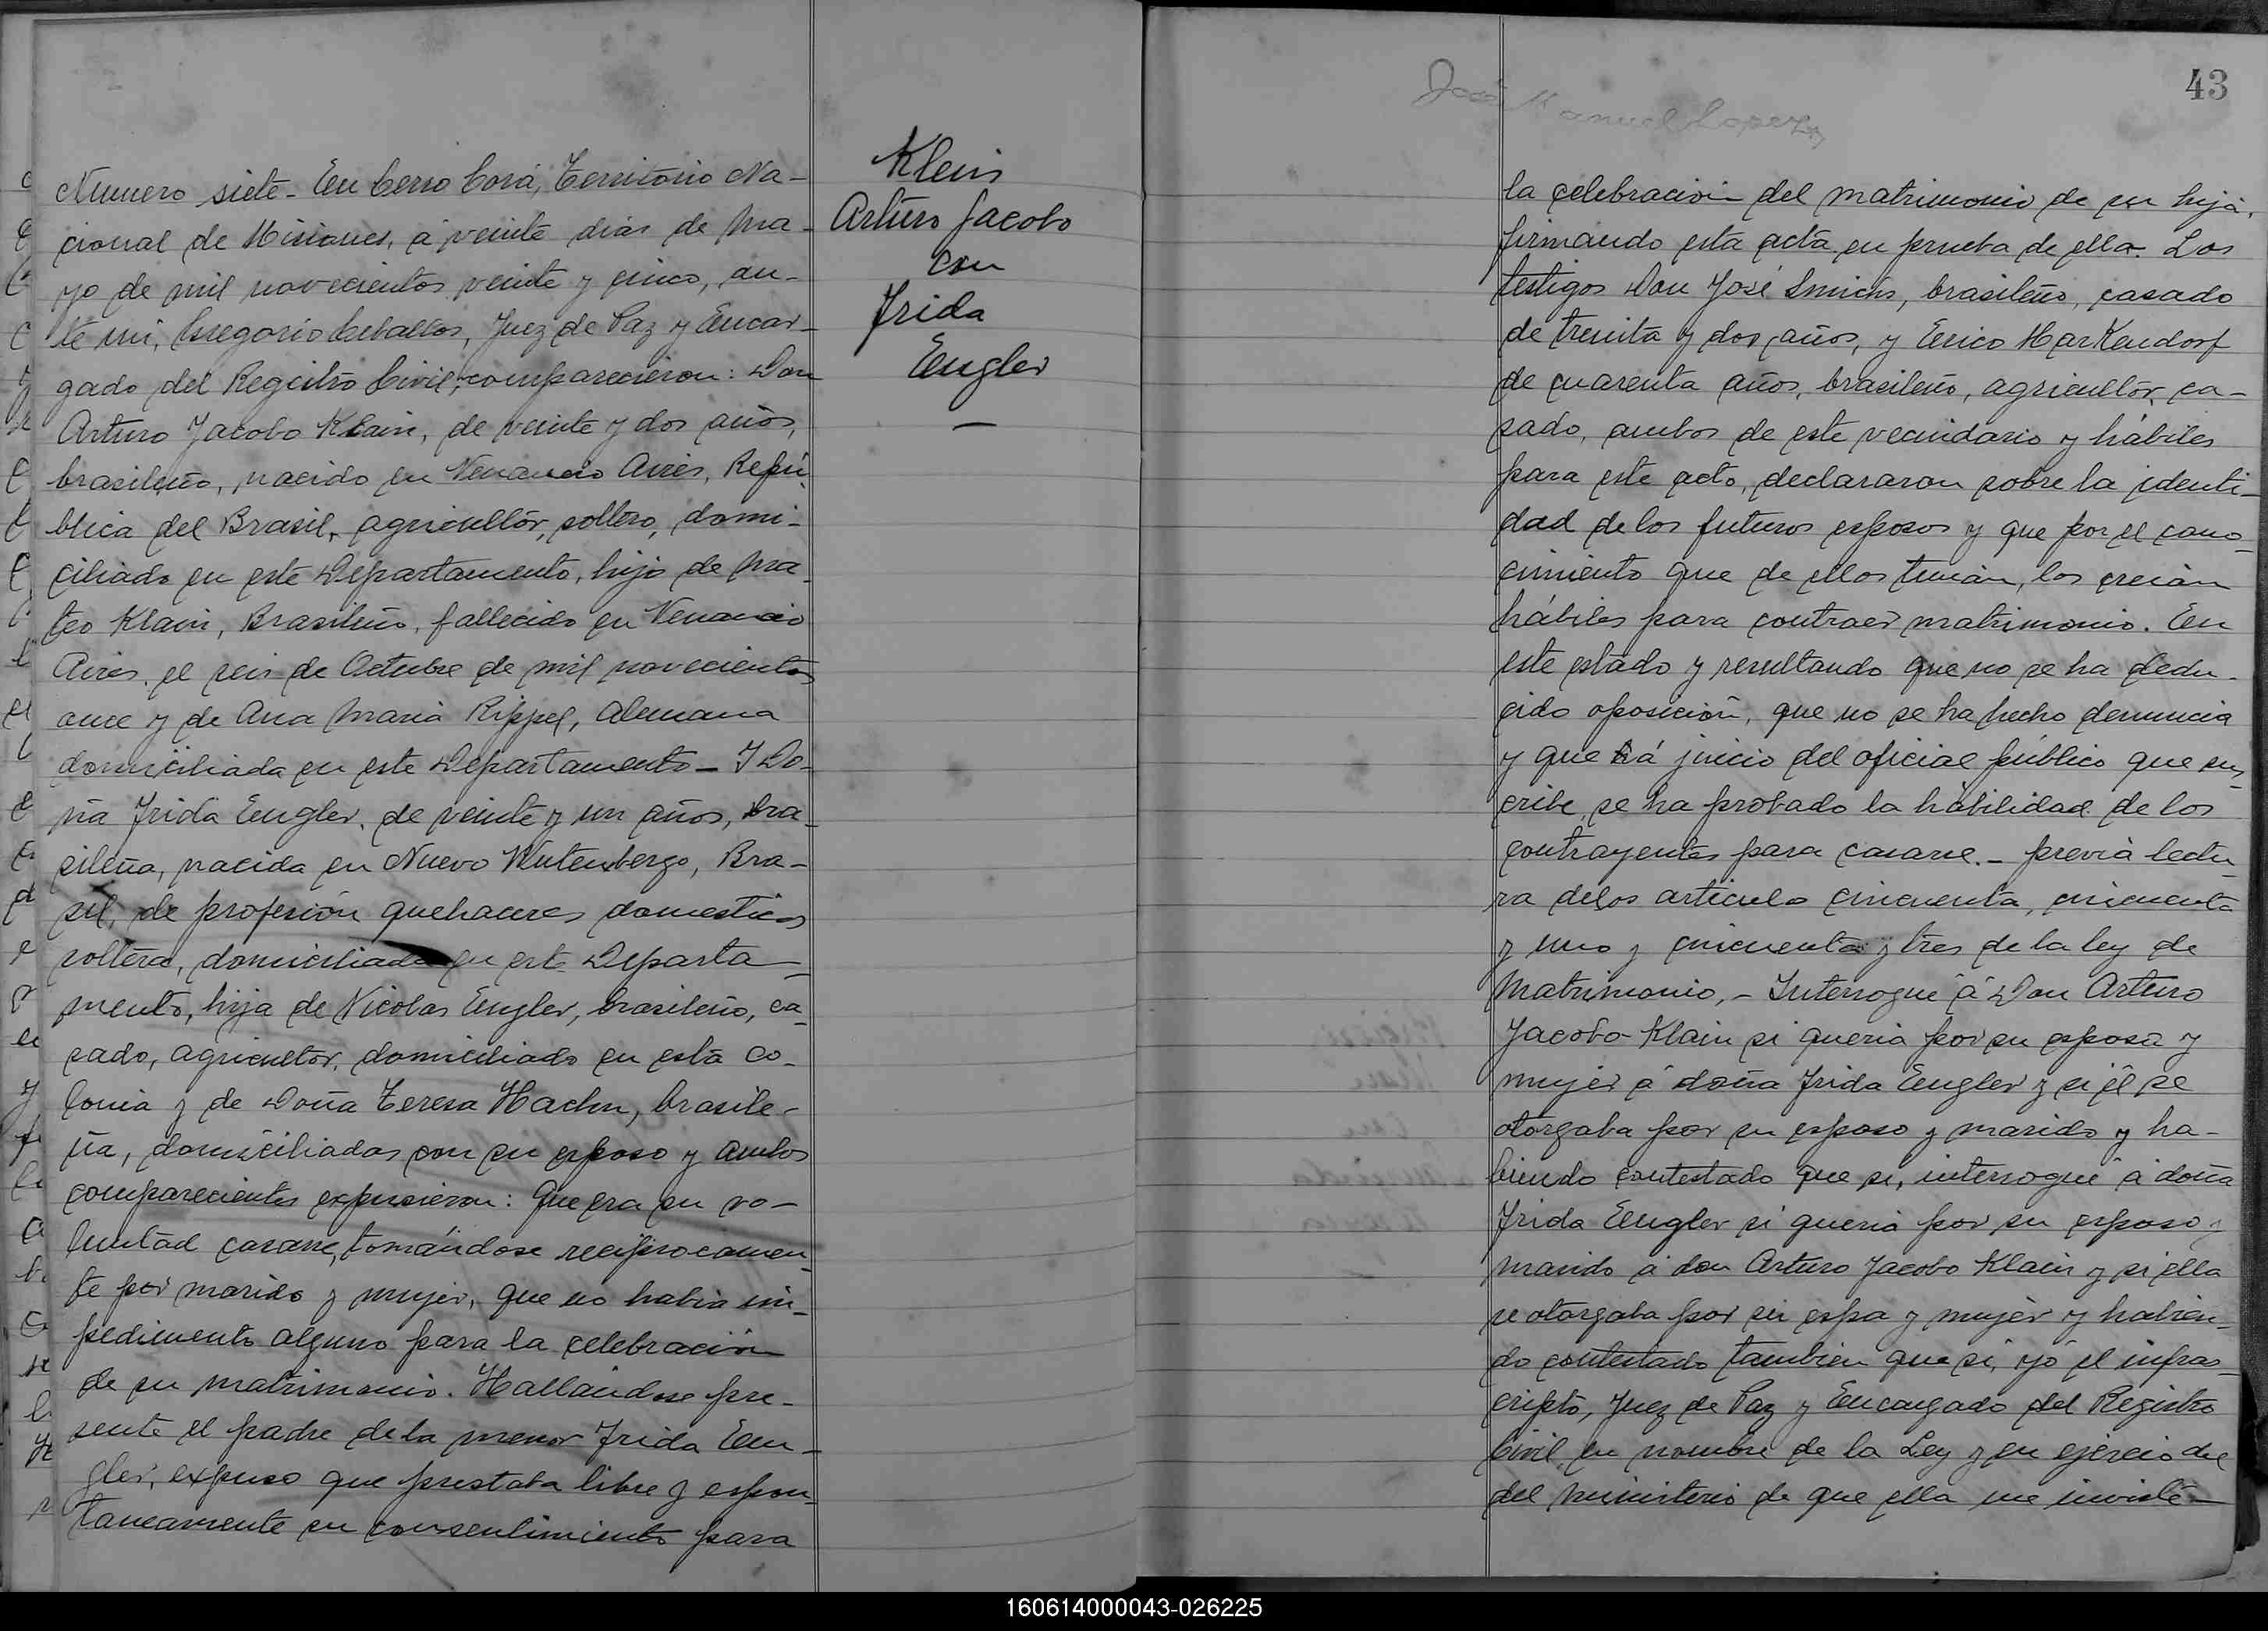 Numero siete - En Cerro Corá, Territorio Na-
cional de Misiones, á veinte dias de Ma-
yo de mil novecientos veinte y cinco, an-
te mi, Gregorio Ceballos, Juez de Paz y Encar-
gado del Registro Civil, comparecieron: Don
Arturo Jacobo Klain, de veinte y dos años,
brasileño, nacido en Venancio Aires, Repú-
blica del Brasil, agricultor, soltero, domi-
ciliado en este Departamento, hijo de Ma-
teo Klain, Brasileño, fallecido en Venancio
Aires, el seis de Octubre de mil novecientos
once y de Ana Maria Rippel, alemana
domiciliada en este Departamento - Y Do-
ña Frida Engler, de veinte y un años, bra-
sileña, nacida en Nuevo Wutenbergo, Bra-
sil, de profesión quehaceres domesticos
soltera, domiciliada en este Departa-
mento, hija de Nicolas Engler, brasileño, ca-
sado, agricultor, domiciliado en esta co-
lonia y de Doña Teresa Hachn, brasile-
ña, domiciliadas con su esposo y ambos
comparecientes expusieron: Que era su vo-
luntad casarse, tomándose reciprocamen-
te por marido y mujer, que no habia im-
pedimento alguno para la celebración
de su matrimonio. Hallándose pre-
sente el padre de la menor Frida En-
gler, expuso que prestaba libre y espon-
taneamente su consentimiento para
Klein
Arturo Jacobo
con
Frida
Engler
—
José Manuel Lopez
43
la celebración del matrimonio de su hija,
firmando esta acta en prueba de ella. Los
testigos Don José Smichs, brasileño, casado
de treinta y dos años, y Erico Markendorf
de cuarenta años, brasileño, agricultor, ca-
sado, ambos de este vecindario y hábiles
para este acto, declararon sobre la identi-
dad de los futuros esposos y que por el cono-
cimiento que de ellos tenian, los creian
hábiles para contraer matrimonio. En
este estado y resultando que no se ha dedu-
cido oposición, que no se ha hecho denuncia
y que á juicio del oficial público que sus-
cribe, se ha probado la habilidad de los
contrayentes para casarse. - previa lectu-
ra delos articulo cincuenta, cincuenta
y uno y cincuenta y tres de la ley de
Matrimonio, - Interrogue á Don Arturo
Jacobo Klain si queria por su esposa y
mujer á doña Frida Engler y si él se
otorgaba por su esposo y marido y ha-
biendo contestado que si, interrogué á doña
Frida Engler si queria por su esposo y
marido á don Arturo Jacobo Klain y si ella
se otorgaba por su espa y mujer y habien-
do contestado tambien que si, yó el infras-
cripto, Juez de Paz y Encargado del Registro
Civil, en nombre de la Ley y en ejercio del
del ministerio de que ella me inviste -
160614000043-026225